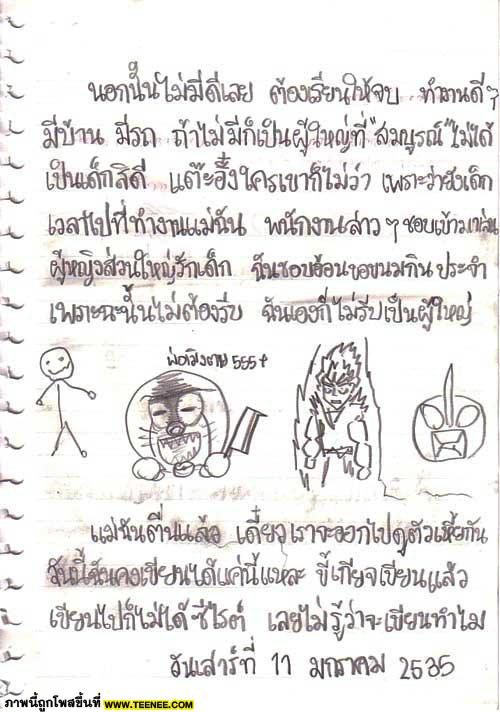 นอกนั้นไม่มีดีเลย ต้องเรียนให้จบ ทำงานดีๆ
มีบ้าน มีรถ ถ้าไม่มีก็เป็นผู้ใหญ่ที่ "สมบูรณ์" ไม่ได้
เป็นเด็กสิดี แต๊ะอั๋งใครเขาก็ไม่ว่า เพราะว่ายังเด็ก
เวลาไปที่ทำงานแม่ฉัน พนักงานสาวๆ ชอบเข้ามาเล่น
ผู้หญิงส่วนใหญ่รักเด็ก ฉันชอบอ้อนขอขนมกิน ประจำ
เพราะฉะนั้นไม่ต้องรีบ ฉันเองก็ไม่รีบเป็นผู้ใหญ่
พ่อมึงตาย 555+
แม่ฉันตื่นแล้ว เดี๋ยวเราจะออกไปดูตัวเหี้ยกัน
วันนี้ฉันคงเขียนได้แค่นี้แหละ ขี้เกียจเขียนแล้ว
เขียนไปก็ไม่ได้ซีไรต์ เลยไม่รู้ว่าจะเขียนทำไม
วันเสาร์ที่ 11 มกราคม 2535
ภาพนี้ถูกโพสขึ้นที่ WWW.TEENEE.COM